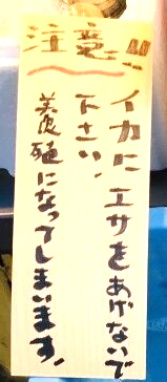 注意!!
イカにエサをあげないで
下さい、
養殖になってしまいます。